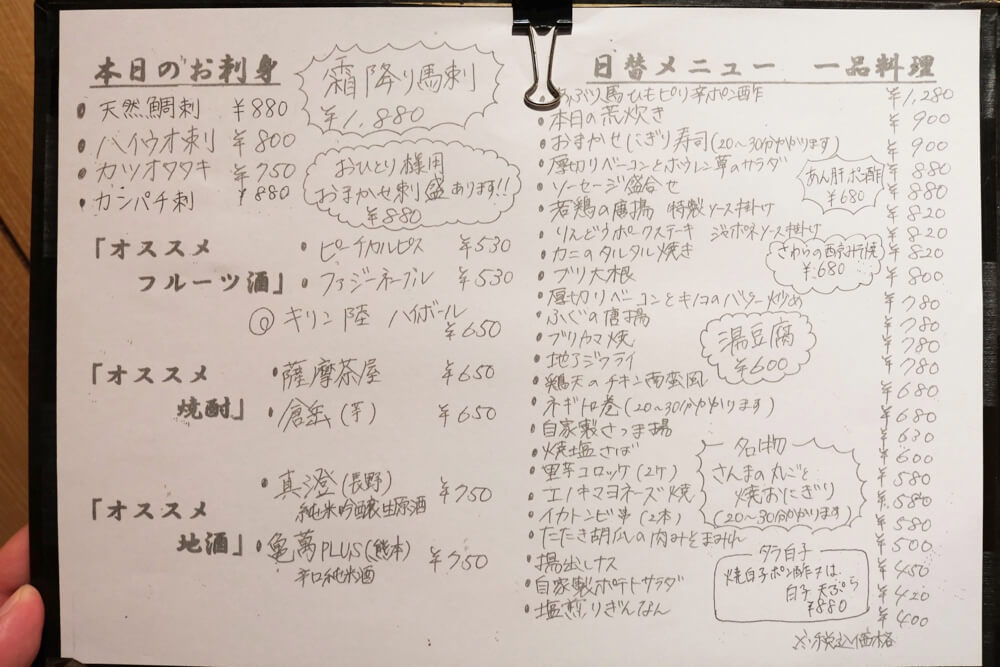 本日のお刺身
・天然鯛刺 ¥880
・バイウオ刺 ¥800
・カツオタタキ ¥750
・カンパチ刺 ¥880
霜降り馬刺
¥1,880
おひとり様用
おまかせ刺盛あります!!
¥880
「オススメ
フルーツ酒」
・ピーチカルピス ¥530
・ファジーネーブル ¥530
◎キリン陸 ハイボール
¥650
「オススメ
焼酎」
・薩摩茶屋 ¥650
・倉岳(芋) ¥650
「オススメ
地酒」
・真澄(長野) ¥750
純米吟醸生原酒
・亀萬PLUS(熊本) ¥750
辛口純米酒
日替メニュー 一品料理
・あぶり馬ひもピリ辛ポン酢 ¥1,280
・本日の荒炊き ¥900
・おまかせにぎり寿司(20〜30分かかります) ¥900
・厚切りベーコンとホウレン草のサラダ ¥880
・ソーセージ盛合せ ¥880
・若鶏の唐揚 特製ソース掛け ¥820
・りんどうポークステーキ ジャポネソース掛け ¥820
・カニのタルタル焼き ¥820
・ブリ大根 ¥800
・厚切りベーコンとキノコのバター炒め ¥780
・ふぐの唐揚 ¥780
・ブリカマ焼 ¥780
・地アジフライ ¥780
・鶏天のチキン南蛮風 ¥680
・ネギトロ巻(20〜30分かかります) ¥680
・自家製さつま揚 ¥630
・焼塩さば ¥600
・里芋コロッケ(2ケ) ¥580
・エノキマヨネーズ焼 ¥580
・イカトンビ串(2本) ¥580
・たたき胡瓜の肉みそまみれ ¥500
・揚出しナス ¥450
・自家製ポテトサラダ ¥420
・塩煎りぎんなん ¥400
あん肝ポン酢
¥680
さわらの西京みそ焼
¥680
湯豆腐
¥600
名物
さんまの丸ごと
焼おにぎり
(20〜30分かかります)
タラ白子
焼白子ポン酢又は
白子天ぷら
¥880
※税込価格